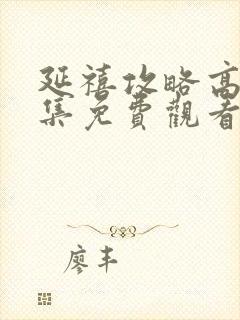 延禧攻略高
集免費觀看
廖丰